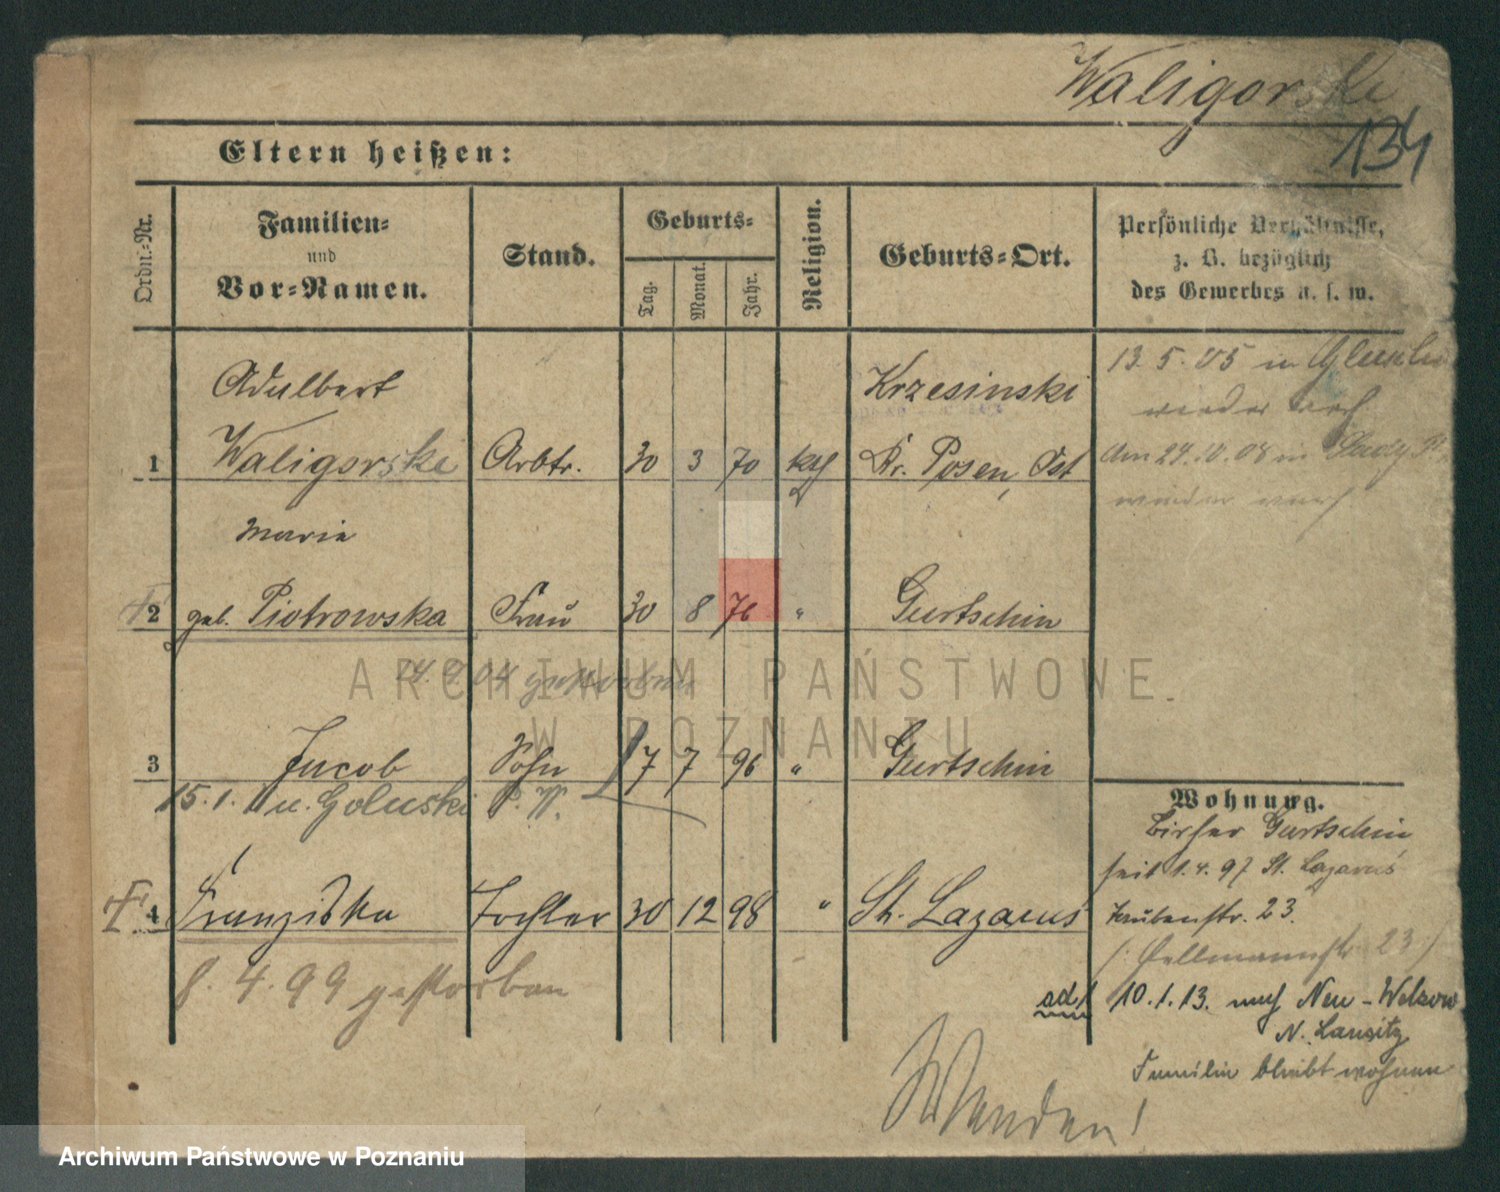 Waligorski
134
Eltern heißen:
Ordn.-Nr.
Familien-
und
Vor-Namen.
Stand.
Geburts-
Tag.
Monat.
Jahr.
Religion.
Geburts-Ort.
Persönliche Verhältnisse,
z. B. bezüglich
des Gewerbes u. s. w.
Adalbert Krzesinski
1 Waligorski Arbtr. 30 3 70 kath Kr. Posen, Ost
13. 5. 05 in
wieder nach
Am 29. 10. 08 in
wieder nach
Marie
2 geb. Piotrowska Frau 30 8 76 " Gurtschin
24. 9. 04 gestorben
3 Jacob Sohn 17 7 96 " Gurtschin
15. 1. n. Goluski P. W.
4 Franziska Tochter 30 12 98 " St. Lazarus
8. 4. 99 gestorben
Wohnung.
Bisher Gurtschin
seit 1. 4. 97 St. Lazarus
23.
23
ad 1 10. 1. 13. nach Neu-Welzow
N. Lausitz
Familie bleibt wohnen
Wenden!
ARCHIWUM PAŃSTWOWE
W POZNANIU
Archiwum Państwowe w Poznaniu